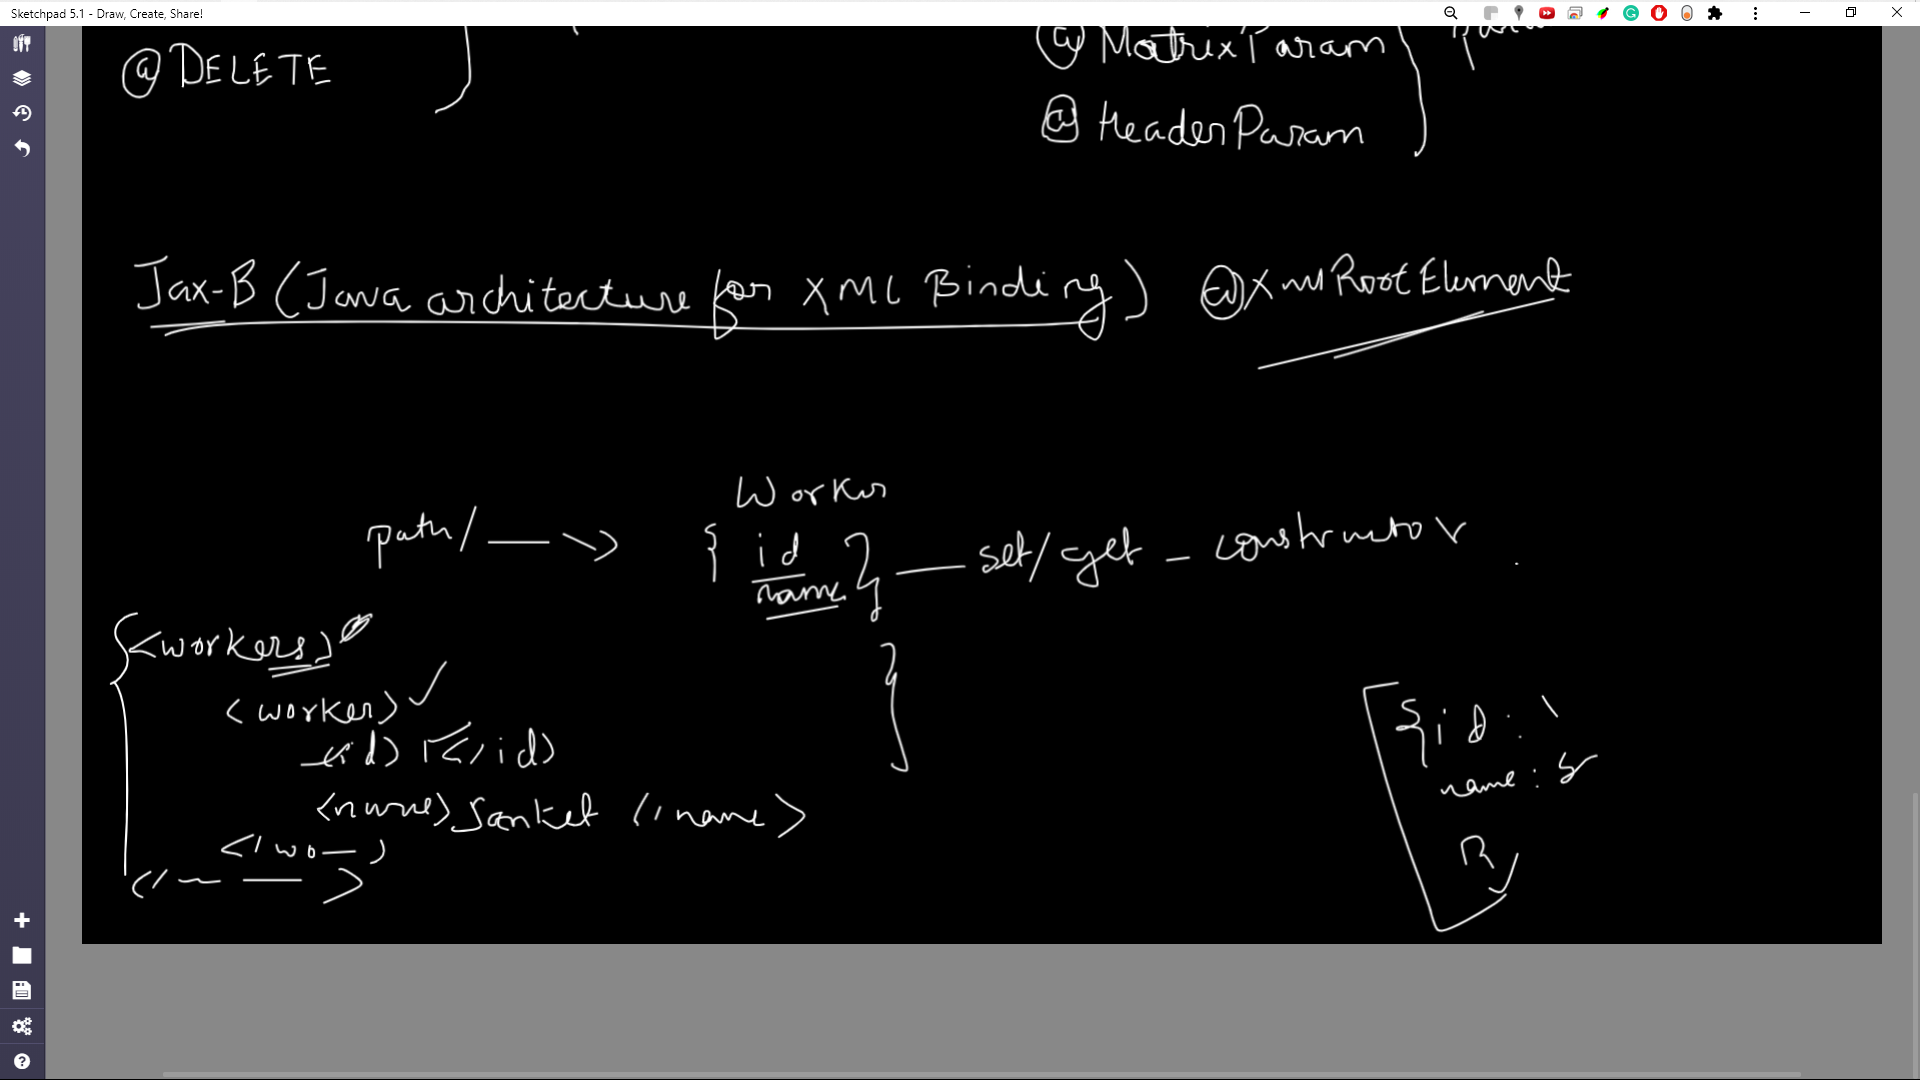 Sketchpad 5.1 - Draw, Create, Share!
@DELETE
@MatrixParam
@HeaderParam
Jax-B (Java architecture for XML Binding) @XmlRootElement
Worker
path/ — ->
{ id
name } — set/get - constructor
}
<workers>
<worker>
<id> 1 </id>
<name> Sanket </name>
</wo—>
</— — >
{ id :
name : S